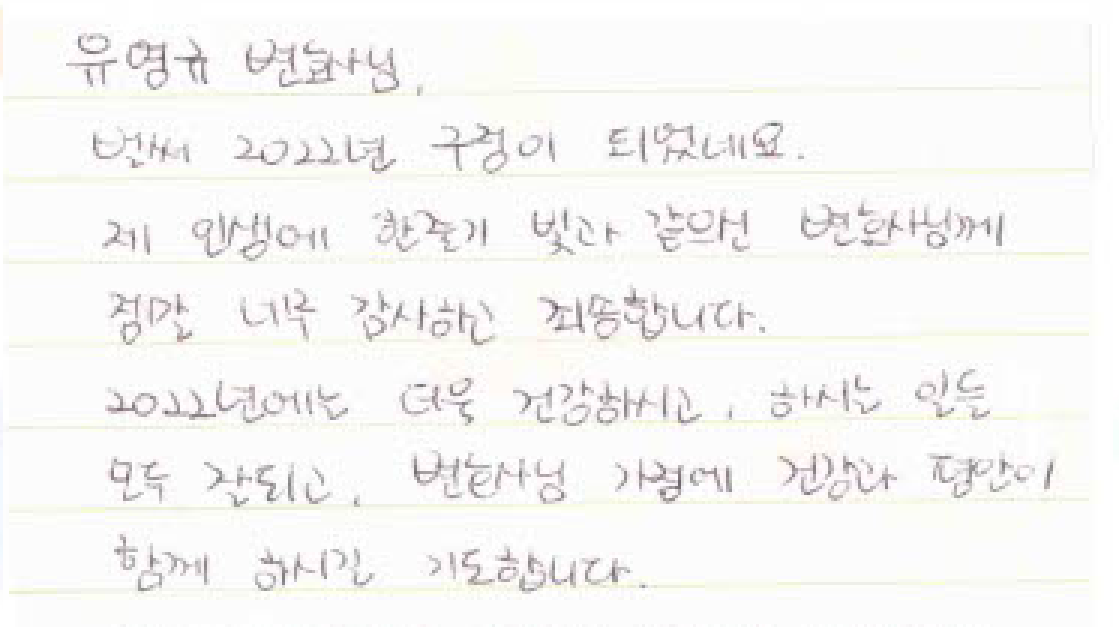 유영규 변호사님,
벌써 2022년 구정이 되었네요.
제 인생에 한줄기 빛과 같으신 변호사님께
정말 너무 감사하고 죄송합니다.
2022년에는 더욱 건강하시고, 하시는 일들
모두 잘되고, 변호사님 가정에 건강과 평안이
함께 하시길 기도합니다.